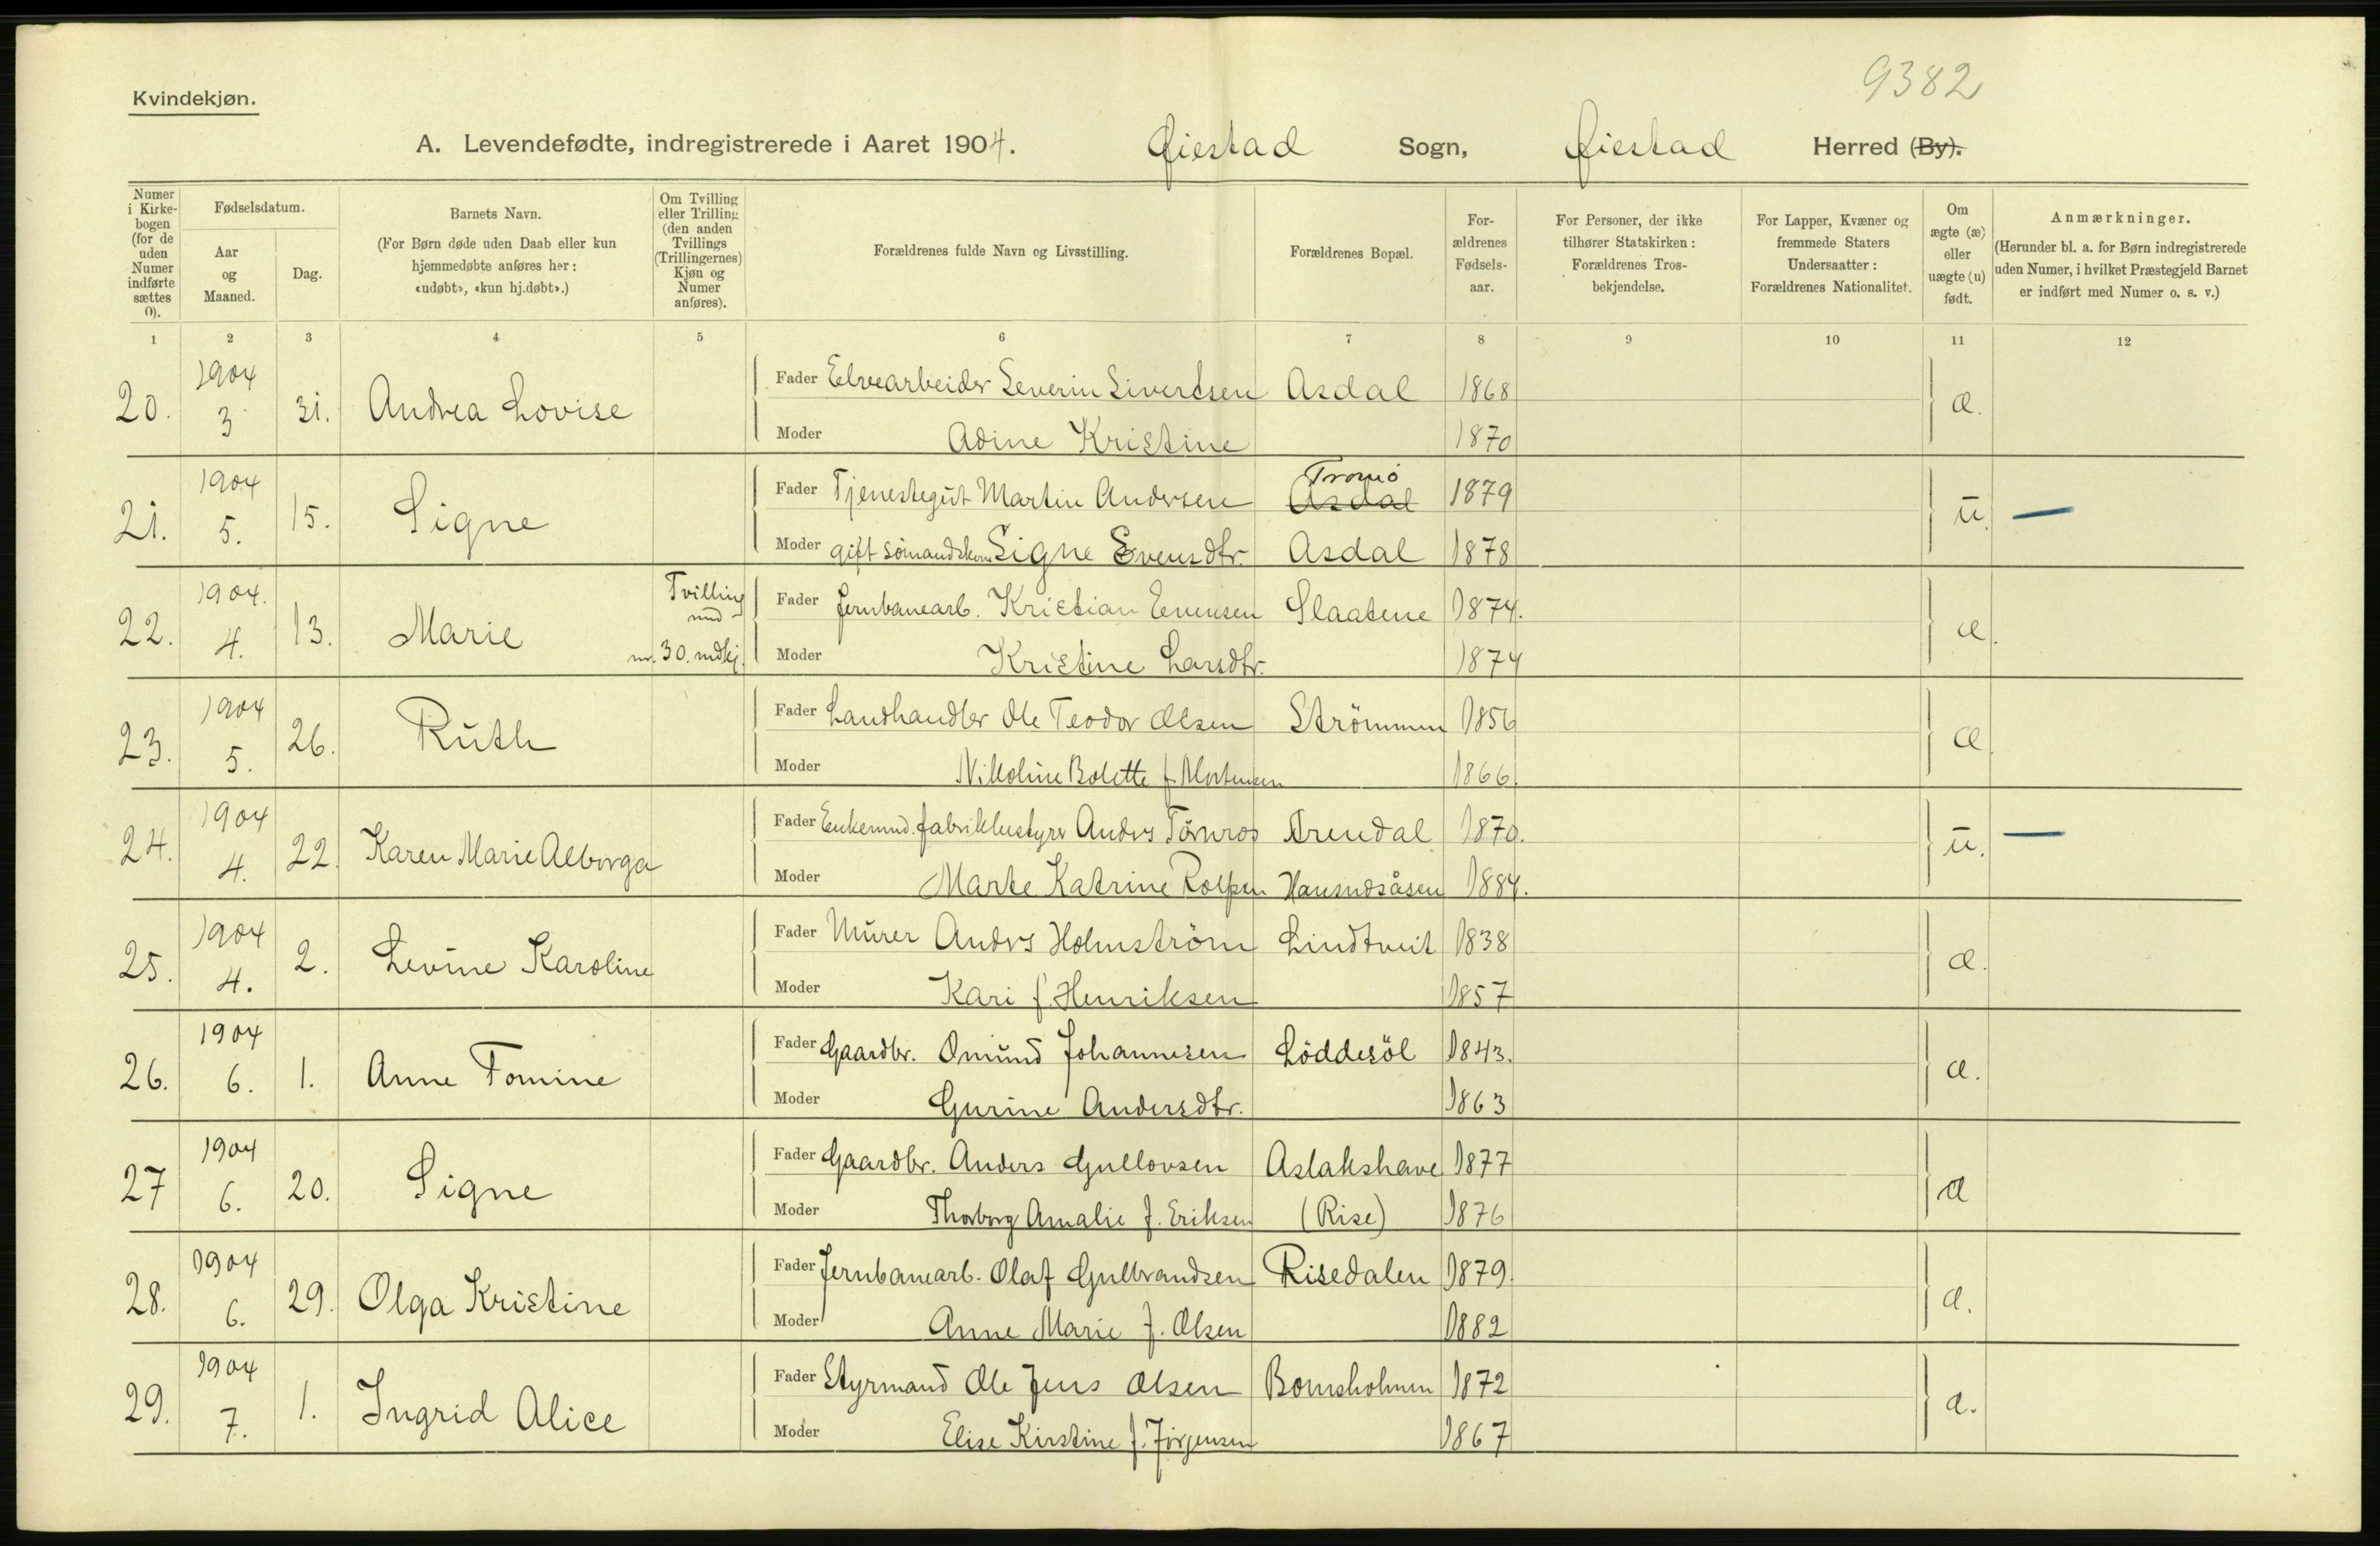 9382
Kvindekjøn.
A. Levendefødte, indregistrerede i Aaret 1904. Øiestad Sogn, Øiestad Herred (By).
Numer i Kirkebogen (for de uden Numer indførte sættes 0).
Fødselsdatum.
Aar og Maaned.
Dag.
Barnets Navn.
(For Børn døde uden Daab eller kun hjemmedøbte anføres her: «udøbt», «kun hj.døbt».)
Om Tvilling eller Trilling (den anden Tvillings (Trillingernes) Kjøn og Numer anføres).
Forældrenes fulde Navn og Livsstilling.
Forældrenes Bopæl.
Forældrenes Fødselsaar.
For Personer, der ikke tilhører Statskirken: Forældrenes Trosbekjendelse.
For Lapper, Kvæner og fremmede Staters Undersaatter: Forældrenes Nationalitet.
Om ægte (æ) eller uægte (u) født.
Anmærkninger.
(Herunder bl. a. for Børn indregistrerede uden Numer, i hvilket Præstegjeld Barnet er indført med Numer o. s. v.)
1 2 3 4 5 6 7 8 9 10 11 12
20. 1904 3 31. Andrea Lovise Fader Elvearbeider Severin Sivertsen Asdal 1868 æ.
Moder Adine Kristine 1870
21. 1904 5. 15. Signe Fader Tjenestegut Martin Andersen Asdal Tromö 1879 u. —
Moder gift sömandskone Signe Evensdtr. Asdal 1878
22. 1904. 4. 13. Marie Tvilling med nr. 30. mdkj. Fader Jernbanearb. Kristian Evensen Slaatene 1874. æ.
Moder Kristine Larsdtr. 1874
23. 1904 5. 26. Ruth Fader Landhandler Ole Teodor Olsen Strömmen 1856 æ
Moder Nikoline Bolette f. Mortensen 1866.
24. 1904 4. 22. Karen Marie Alborga Fader Enkemand. fabrikbestyrer Anders Törnros Arendal 1870. u. —
Moder Marte Katrine Rolfsen 1884.
25. 1904 4. 2. Levine Karoline Fader Murer Anders Holmström Lindtveit 1838 æ.
Moder Kari f. Henriksen 1857
26. 1904 6. 1. Anne Tomine Fader Gaardbr. Omund Johannesen Löddesöl 1843. æ.
Moder Gurine Andersdtr. 1863
27 1904 6. 20. Signe Fader Gaardbr. Anders Gullovsen Aslakshave 1877 æ
Moder Thorborg Amalie f. Eriksen (Rise) 1876
28. 1904 6. 29. Olga Kristine Fader Jernbanearb. Olaf Gulbrandsen Risedalen 1879. æ.
Moder Anne Marie f. Olsen 1882
29. 1904 7. 1. Ingrid Alice Fader Styrmand Ole Jens Olsen Bomsholmen 1872 æ.
Moder Elise Kirstine f. Jörgensen 1867